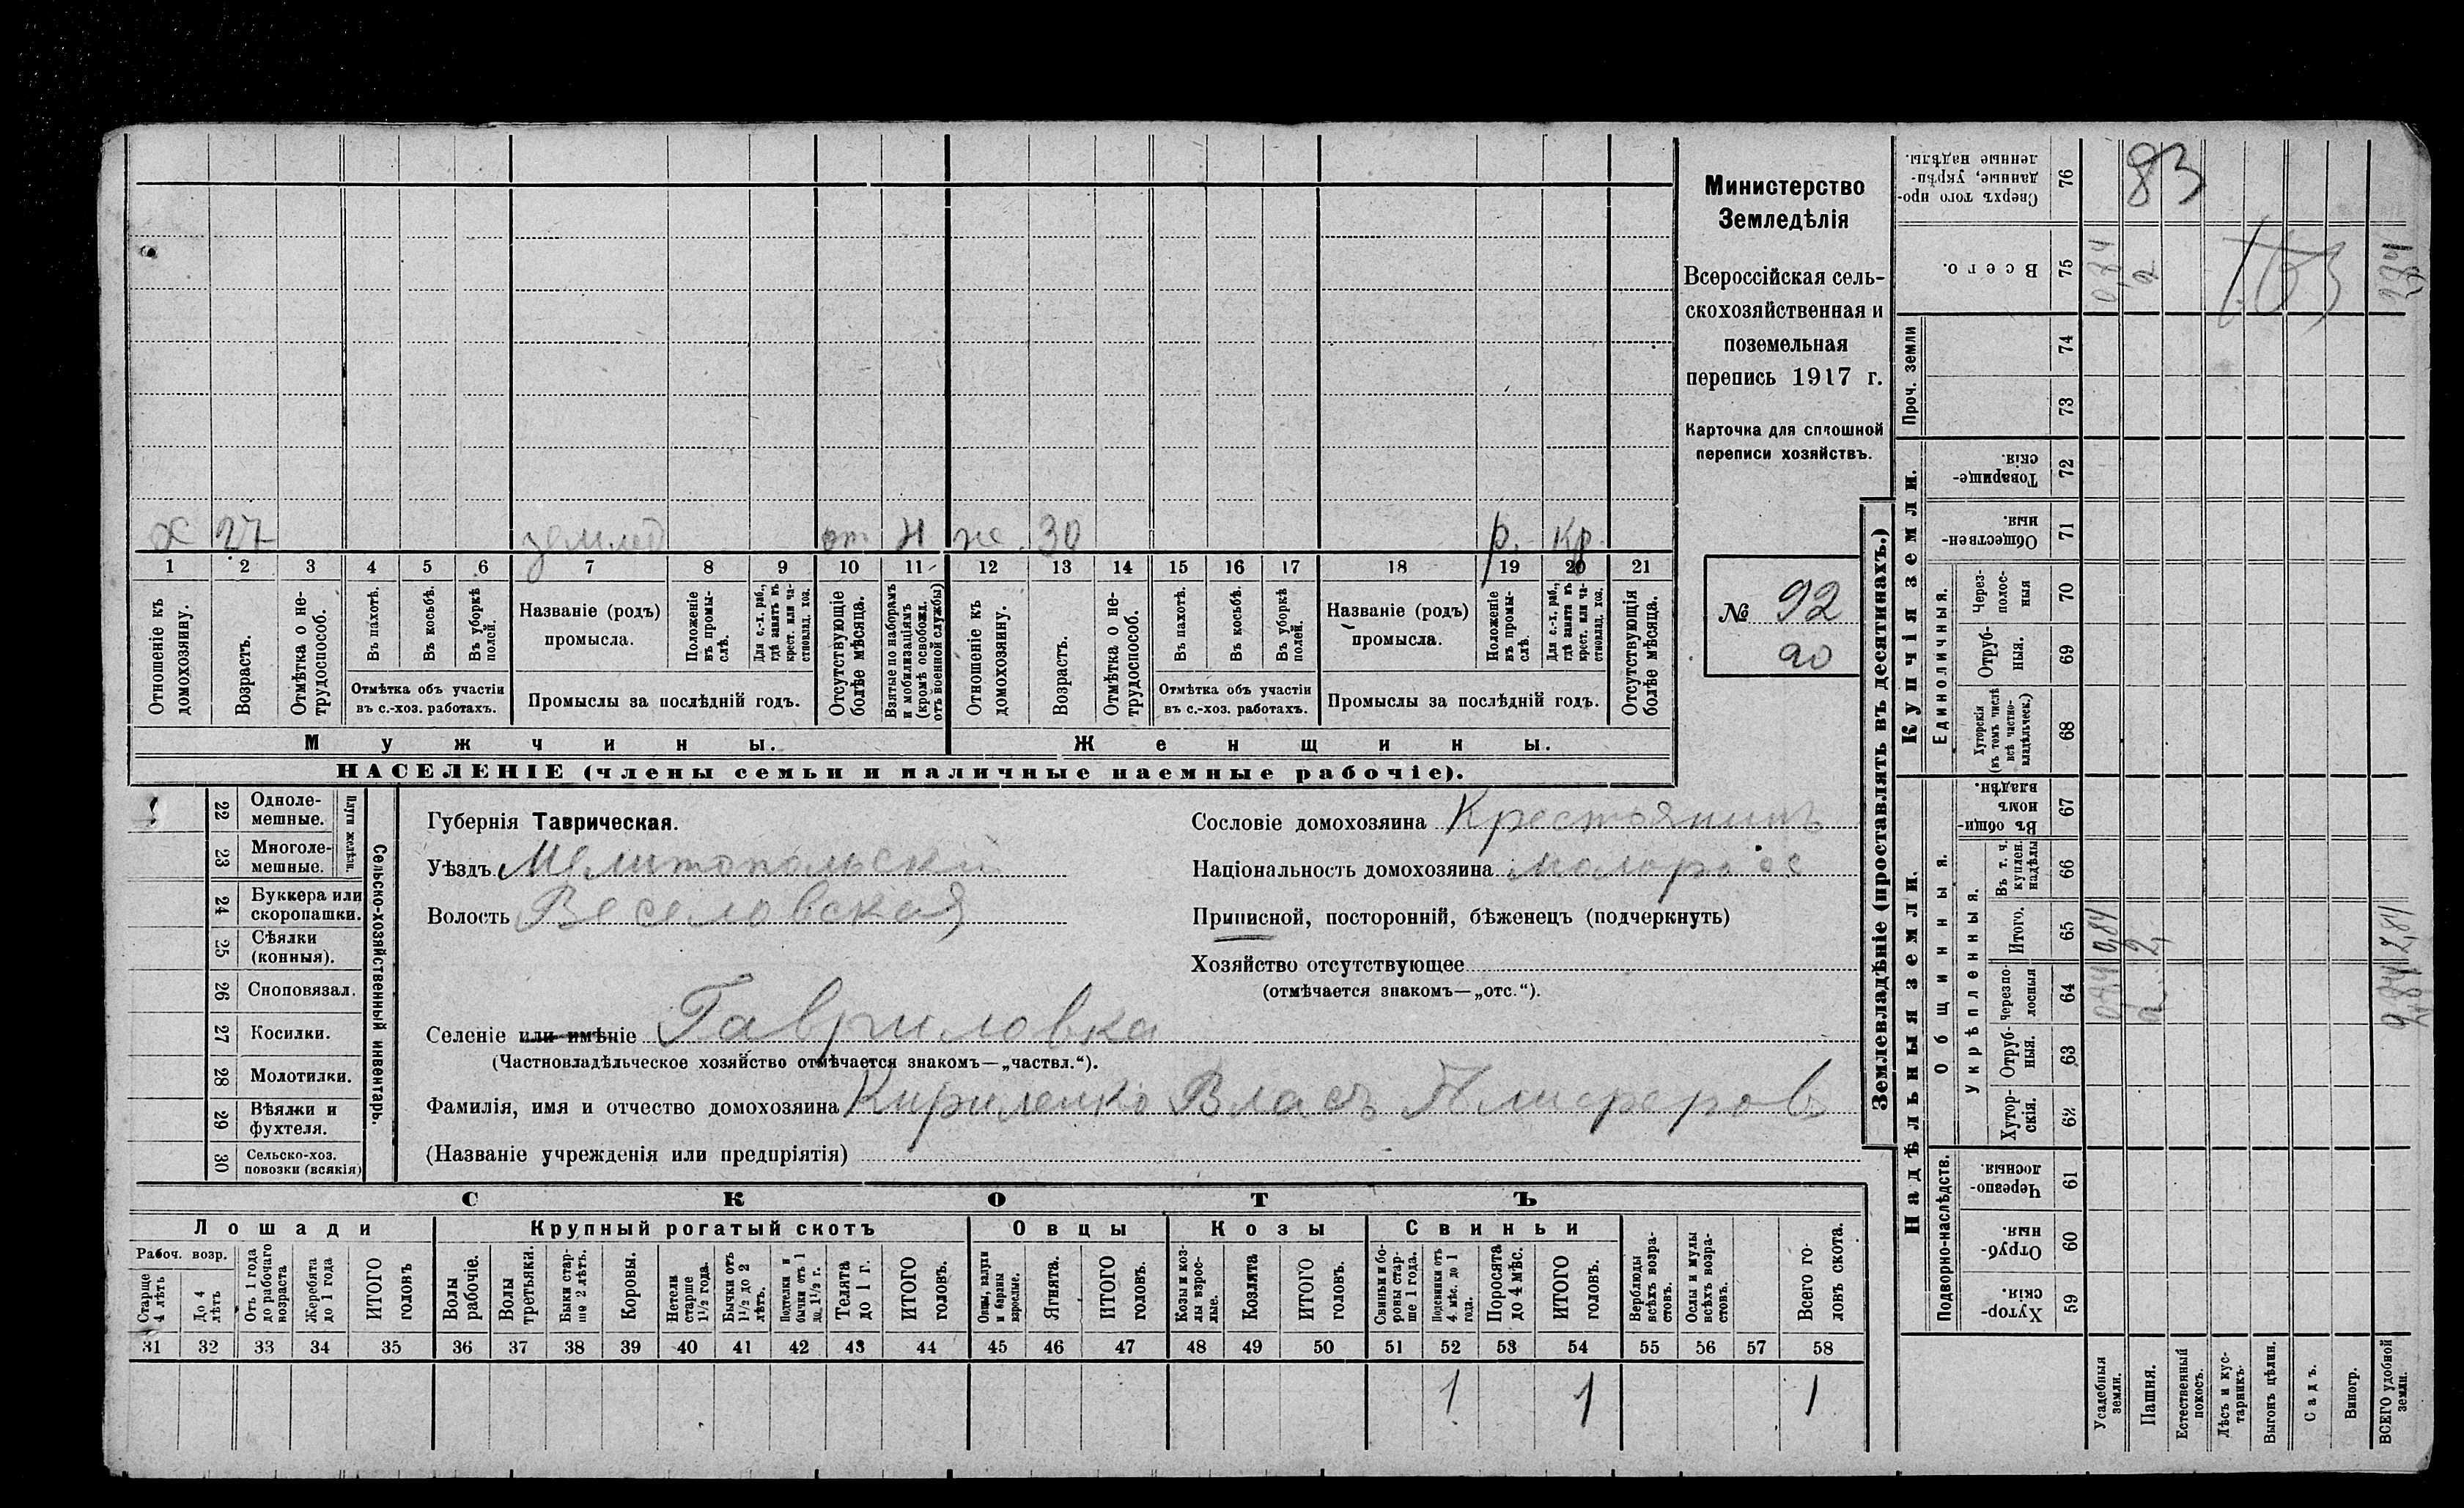 х 27 землед от Н же. 30 р. Кр.
1 2 3 4 5 6 7 8 9 10 11 12 13 14 15 16 17 18 19 20 21
Отношеніе къ домохозяину.
Возрастъ.
Отмѣтка о не-
трудоспособ.
Въ пахотѣ.
Въ косьбѣ.
Въ уборкѣ полей.
Отмѣтка объ участіи
въ с.-хоз. работахъ.
Названіе (родъ)
промысла.
Положеніе въ промы-
слѣ.
Для с.-х. раб., гдѣ занятъ въ крест. или ча-
стновлад. хоз.
Промыслы за послѣдній годъ.
Отсутствующіе болѣе мѣсяца.
Взятые по наборамъ и мобилизаціямъ (кромѣ освобожд. отъ военной службы)
Отношеніе къ домохозяину.
Возрастъ.
Отмѣтка о не-
трудоспособ.
Въ пахотѣ.
Въ косьбѣ.
Въ уборкѣ полей.
Отмѣтка объ участіи
въ с.-хоз. работахъ.
Названіе (родъ)
промысла.
Положеніе въ промы-
слѣ.
Для с.-х. раб., гдѣ занята въ крест. или ча-
стновлад. хоз.
Промыслы за послѣдній годъ.
Отсутствующія болѣе мѣсяца.
Мужчины. Женщины.
НАСЕЛЕНІЕ (члены семьи и наличные наемные рабочіе).
Министерство
Земледѣлія
Всероссійская сель-
скохозяйственная и
поземельная
перепись 1917 г.
Карточка для сплошной
переписи хозяйствъ.
№ 92
20
22 Одноле-
мешные.
23 Многоле-
мешные.
Плуги желѣзн.
24 Буккера или
скоропашки.
25 Сѣялки
(конныя).
26 Сноповязал.
27 Косилки.
28 Молотилки.
29 Вѣялки и
фухтеля.
30 Сельско-хоз.
повозки (всякія)
Сельско-хозяйственный инвентарь.
Губернія Таврическая.
Уѣздъ Мелитопольскій
Волость Веселовская
Селеніе или имѣніе Гавриловка
(Частновладѣльческое хозяйство отмѣчается знакомъ—„частвл.“).
Фамилія, имя и отчество домохозяина Кириленко Власъ
(Названіе учрежденія или предпріятія)
Сословіе домохозяина Крестьянинъ
Національность домохозяина малоросс
Приписной, посторонній, бѣженецъ (подчеркнуть)
Хозяйство отсутствующее
(отмѣчается знакомъ—„отс.“).
СКОТЪ
Лошади Крупный рогатый скотъ Овцы Козы Свиньи
Рабоч. возр.
Старше 4 лѣтъ
До 4 лѣтъ
Отъ 1 года до рабочаго возраста
Жеребята до 1 года
ИТОГО головъ
Волы рабочіе.
Волы третьяки.
Быки стар-
ше 2 лѣтъ.
Коровы.
Нетели старше 1½ года.
Бычки отъ 1½ до 2 лѣтъ.
Подтелки и бычки отъ 1 до 1½ г.
Телята до 1 г.
ИТОГО головъ.
Овцы, валухи и бараны взрослые.
Ягнята.
ИТОГО головъ.
Козы и коз-
лы взрос-
лые.
Козлята
ИТОГО головъ.
Свиньи и бо-
ровы стар-
ше 1 года.
Подсвинки отъ 4 мѣс. до 1 года.
Поросята до 4 мѣс.
ИТОГО головъ.
Верблюды всѣхъ возра-
стовъ.
Ослы и мулы всѣхъ возра-
стовъ.
Всего го-
ловъ скота.
31 32 33 34 35 36 37 38 39 40 41 42 43 44 45 46 47 48 49 50 51 52 53 54 55 56 57 58
1 1 1
Землевладѣніе (проставлять въ десятинахъ.)
Надѣльныя земли. Купчія земли. Проч. земли
Подворно-наслѣдств.
Общинныя.
Укрѣпленныя.
Единоличныя.
Хутор-
скія. 59
Отруб-
ныя. 60
Черезпо-
лосныя. 61
Хутор-
скія. 62
Отруб-
ныя. 63
черезпо-
лосныя 64
Итого. 65
Въ т. ч. куплен. надѣлы 66
Въ общин-
номъ владѣн. 67
Хуторскія (въ томъ числѣ всѣ частно-
владѣльческ.) 68
Отруб-
ныя. 69
Через-
полос-
ныя 70
Обществен-
ныя. 71
Товарище-
скія. 72
73
74
Всего. 75
Сверхъ того про-
данные, укрѣп-
ленные надѣлы. 76
Усадебныя земли. 0,84 0,84 0,84
Пашня. 2 2, 2
83
Естественный покосъ.
Лѣсъ и кус-
тарникъ.
Выгонъ цѣлин.
Садъ.
Виногр.
ВСЕГО удобной земли. 2,84 2,84 2,84